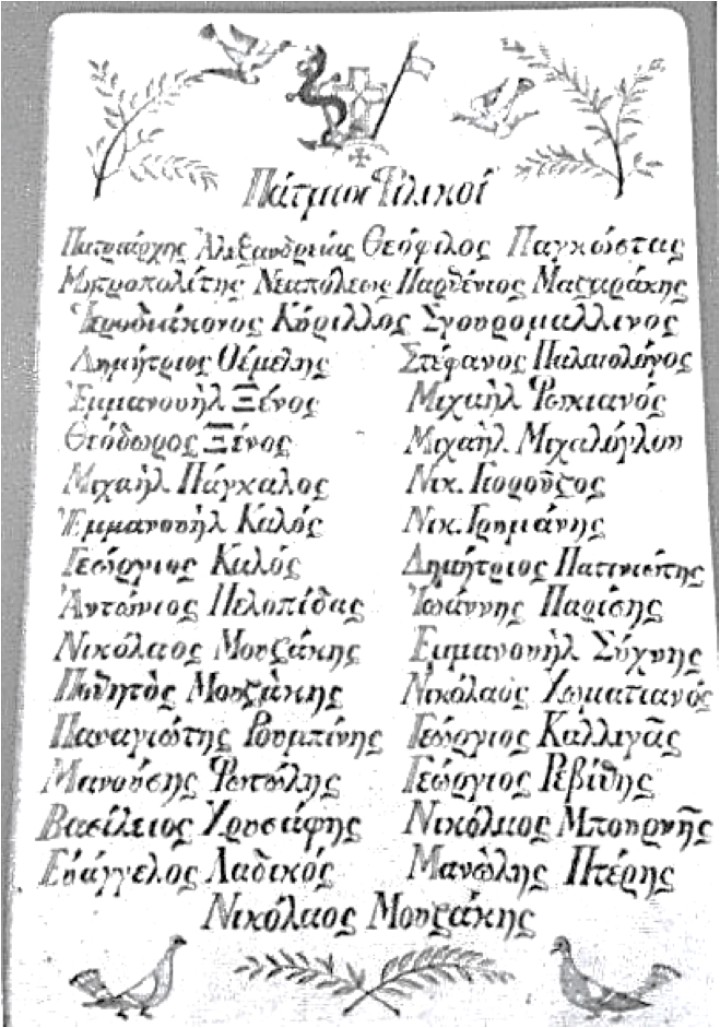 Πάτμιοι Φιλικοί
Πατριάρχης Ἀλεξανδρείας Θεόφιλος Παγκώστας
Μητροπολίτης Νεαπόλεως Παρθένιος Ματζαράκης
Ἱεροδιάκονος Κύριλλος Σγουρομαλλινος
Δημήτριος Θέμελης Στέφανος Παλαιολόγος
Ἐμμανουὴλ Ξένος Μιχαὴλ Φωκιανός
Θεόδωρος Ξένος Μιχαὴλ Μιχαλόγλου
Μιχαὴλ Πάγκαλος Νικ. Γιορούζος
Ἐμμανουὴλ Καλός Νικ. Γρημάνης
Γεώργιος Καλός Δημήτριος Πατινιώτης
Ἀντώνιος Πελοπίδας Ἰωάννης Παρίσης
Νικόλαος Μουζάκης Ἐμμανουὴλ Σύχνης
Ποθητὸς Μουζάκης Νικόλαος Χωματιανός
Παναγιώτης Ρουμπίνης Γεώργιος Καλλιγᾶς
Μανούσης Φωτώλης Γεώργιος Ρεβίθης
Βασίλειος Χρυσάφης Νικόλαος Μπουρνῆς
Εὐάγγελος Λαδικός Μανώλης Πτέρης
Νικόλαος Μουζάκης